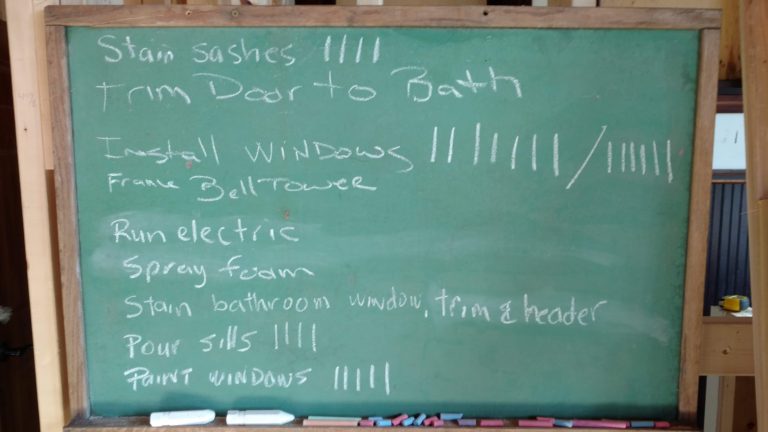 Stain sashes ||||
Trim Door to Bath
Install WINDOWS |||||||| / ||||||
Frame Bell Tower
Run electric
Spray foam
Stain bathroom window, trim & header
Pour sills ||||
PAINT WINDOWS |||||